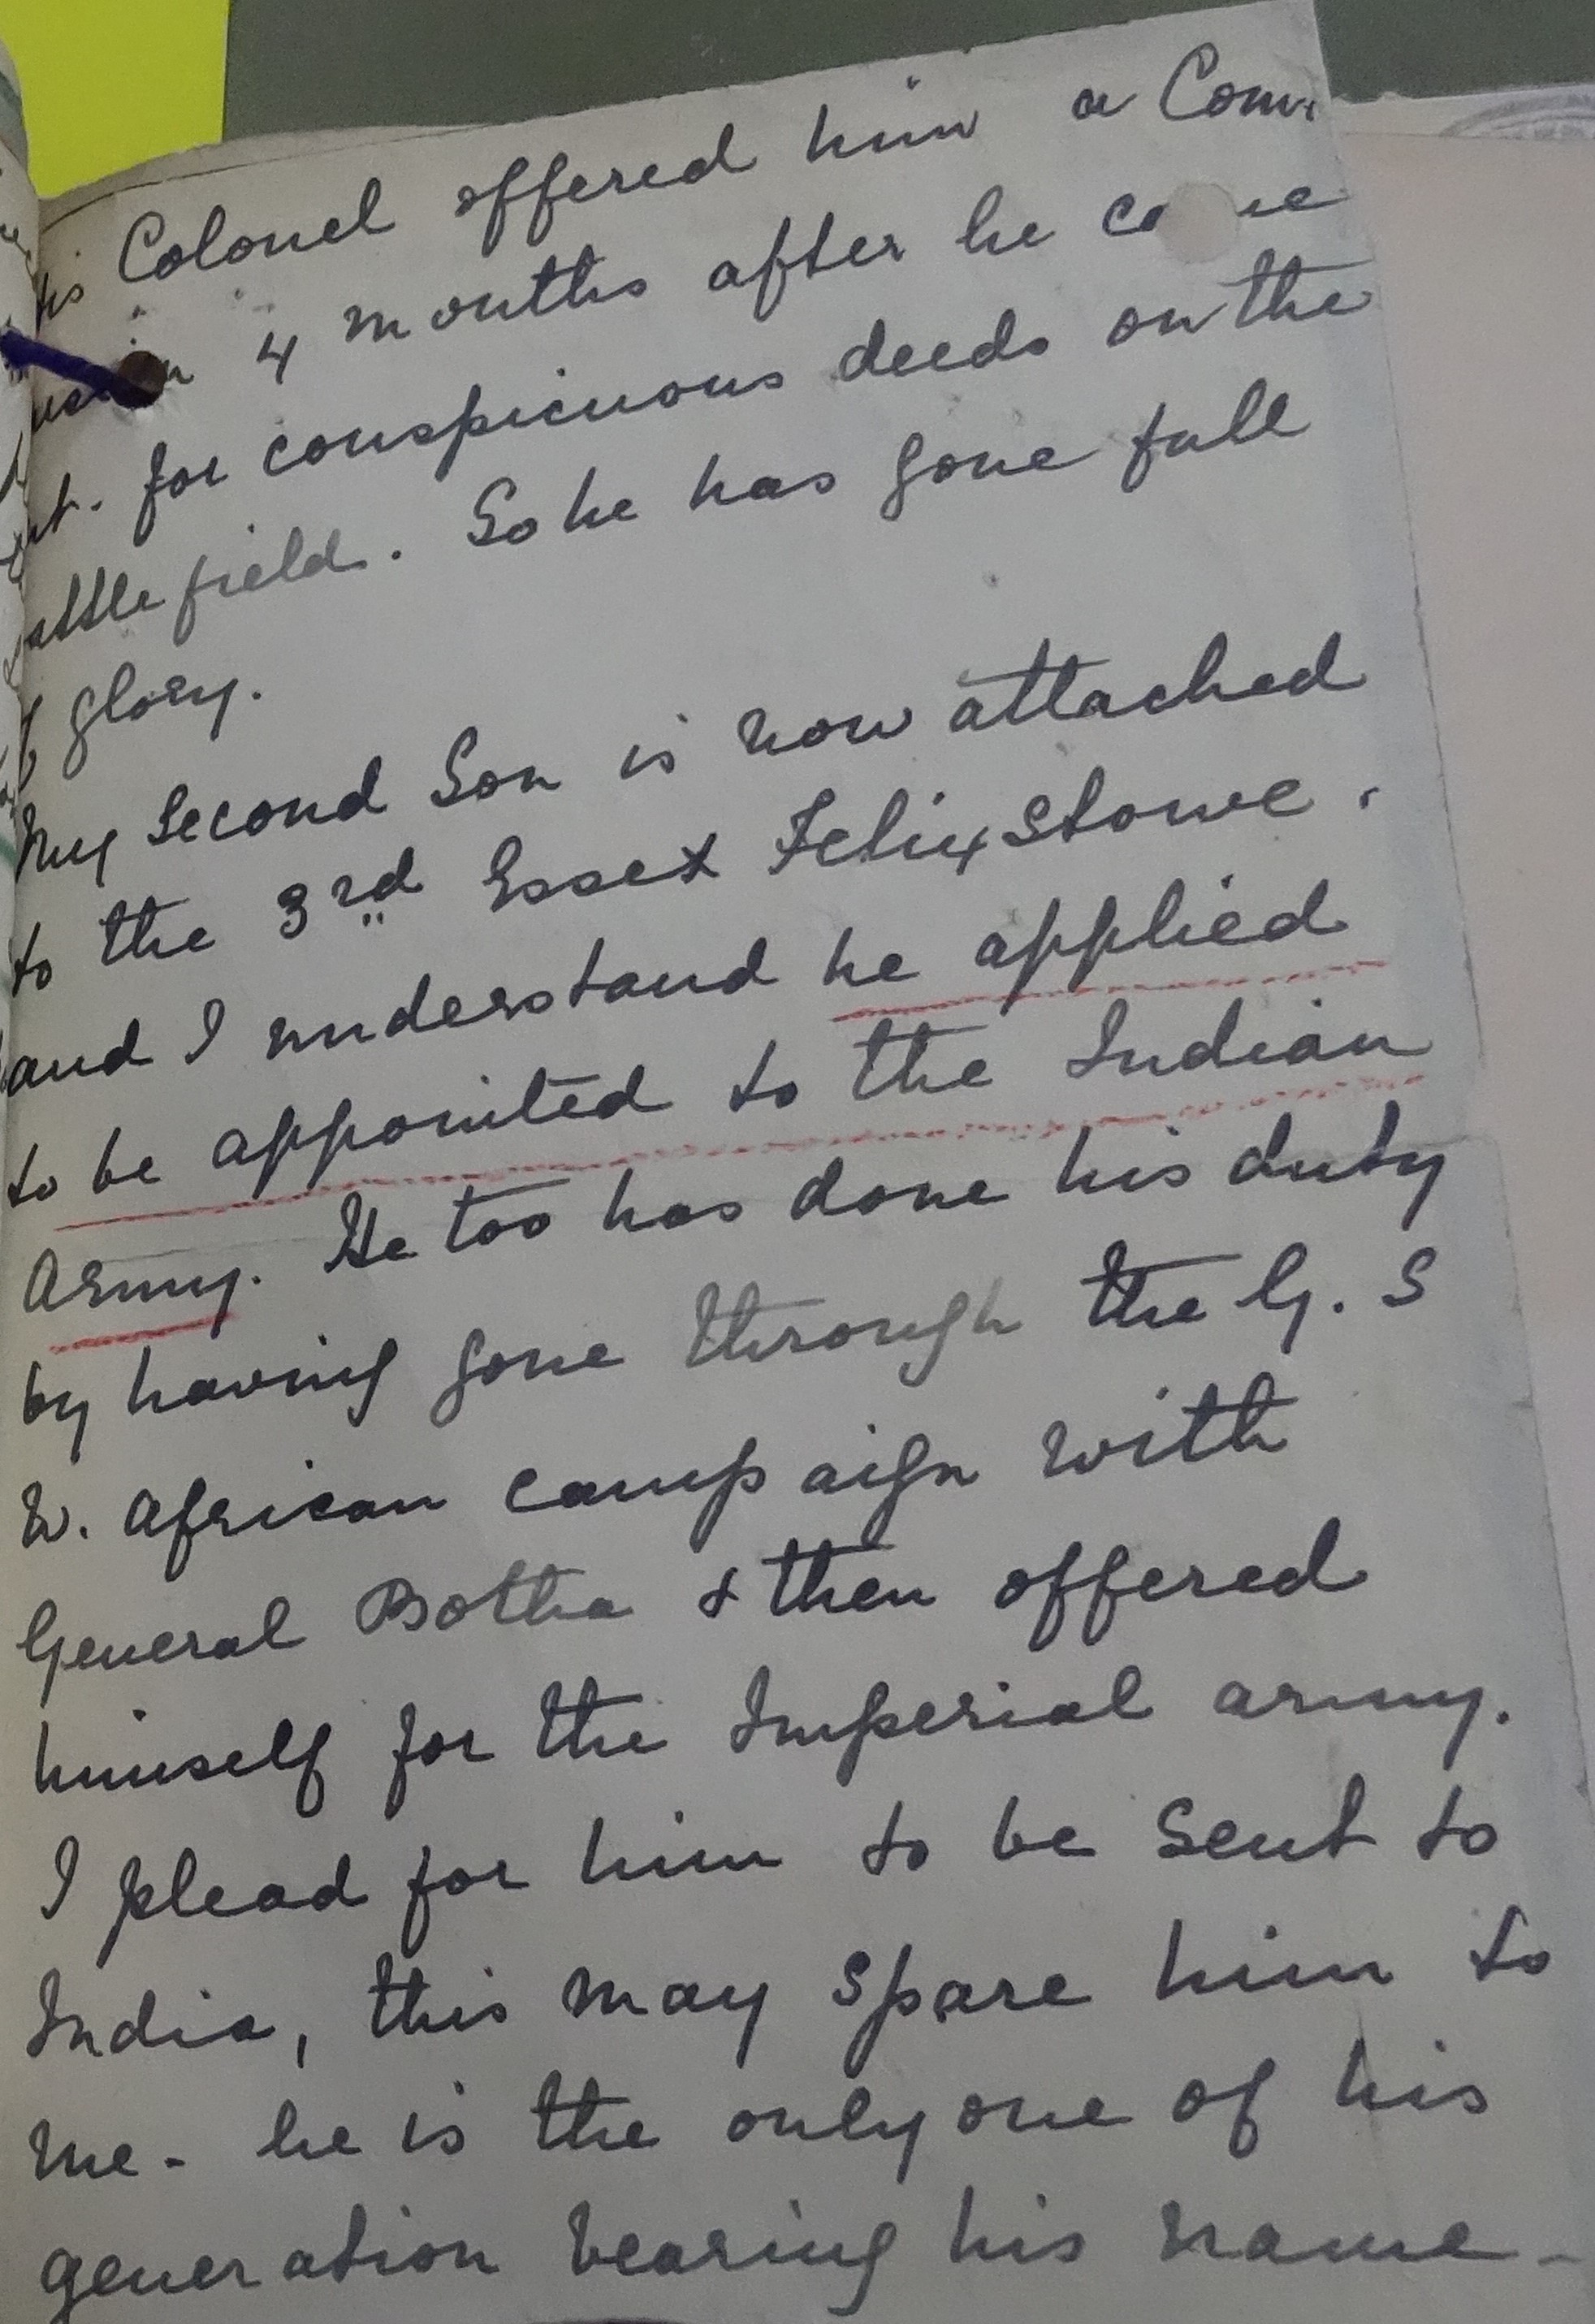 his Colonel offered him a Com
4 months after he came
for conspicuous deeds on the
attle field. So he has gone full
glory.
My Second Son is now attached
to the 3rd Essex Felixstowe.
and I understand he applied
to be appointed to the Indian
Army. He too has done his duty
by having gone through the G. S
W. African campaign with
General Botha & then offered
himself for the Imperial army.
I plead for him to be sent to
India, this may spare him to
me - he is the only one of his
generation bearing his name -